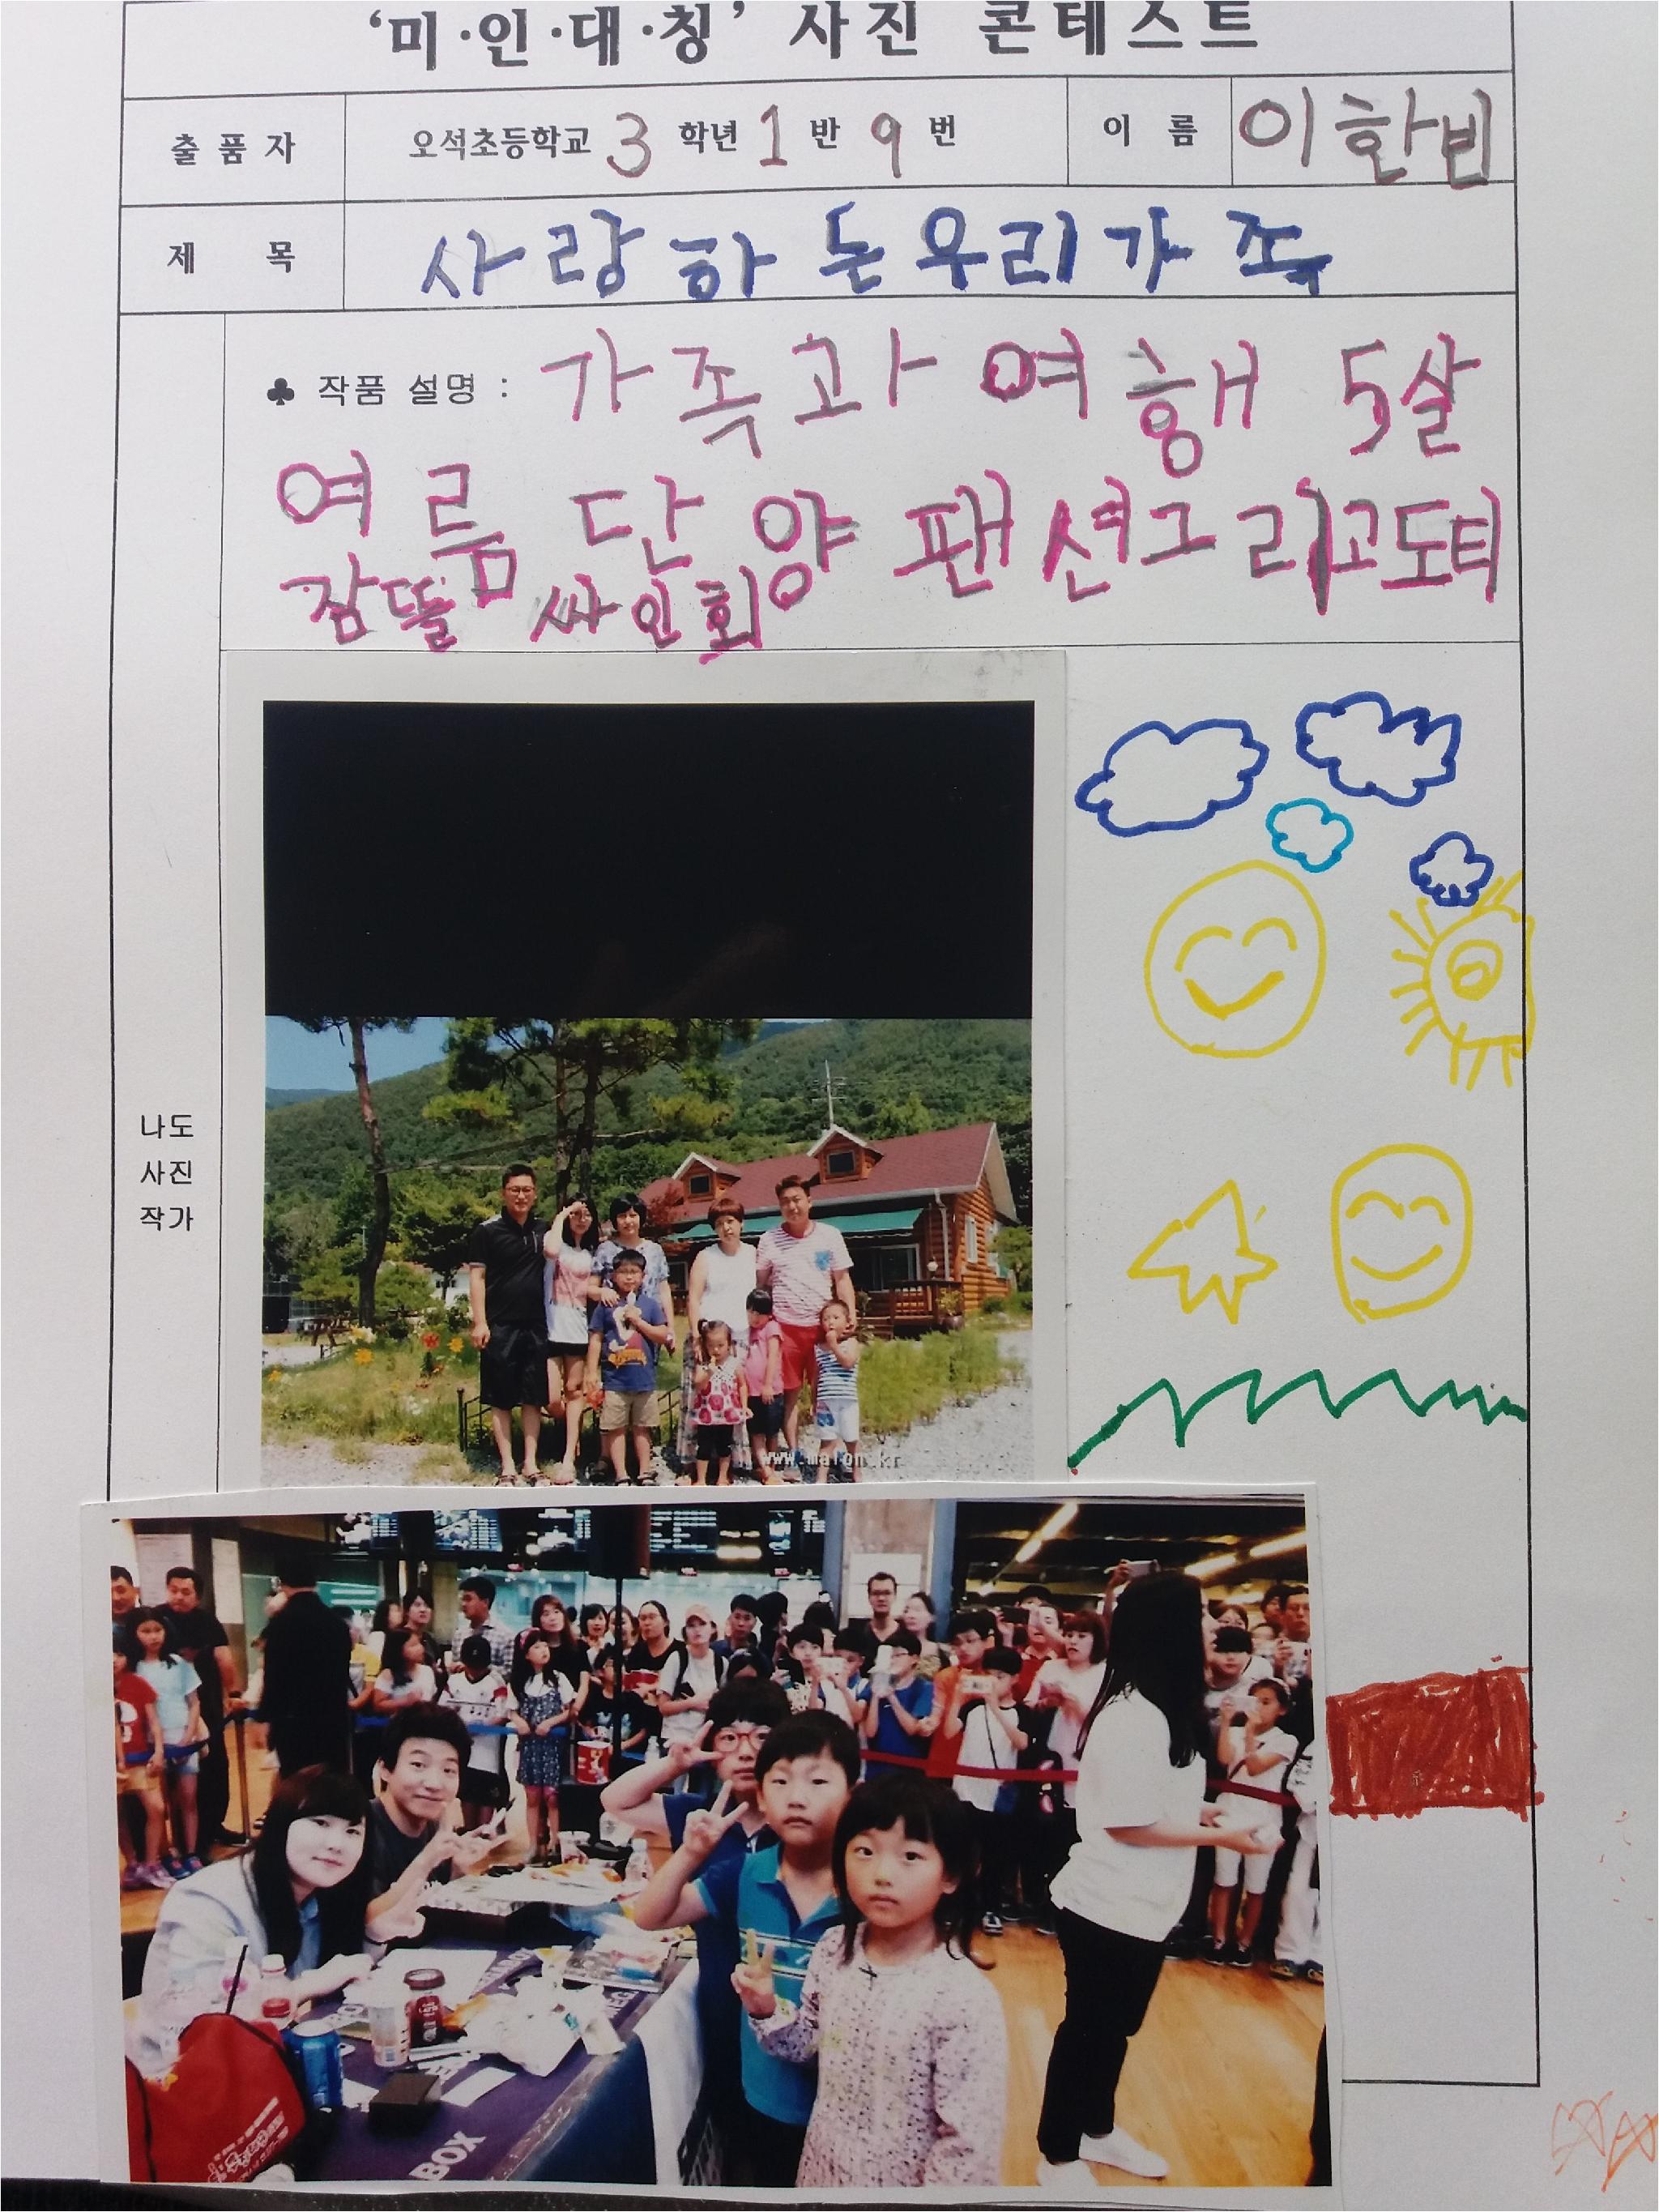 '미·인·대·칭' 사진 콘테스트
출품자 오석초등학교 3 학년 1 반 9 번 이름 이한빈
제목 사랑하는우리가족
♣ 작품 설명 : 가족과 여행 5살
여름 단양 팬션그리고도티
잠뜰 싸인회
나도
사진
작가
www.malon.kr
BOX